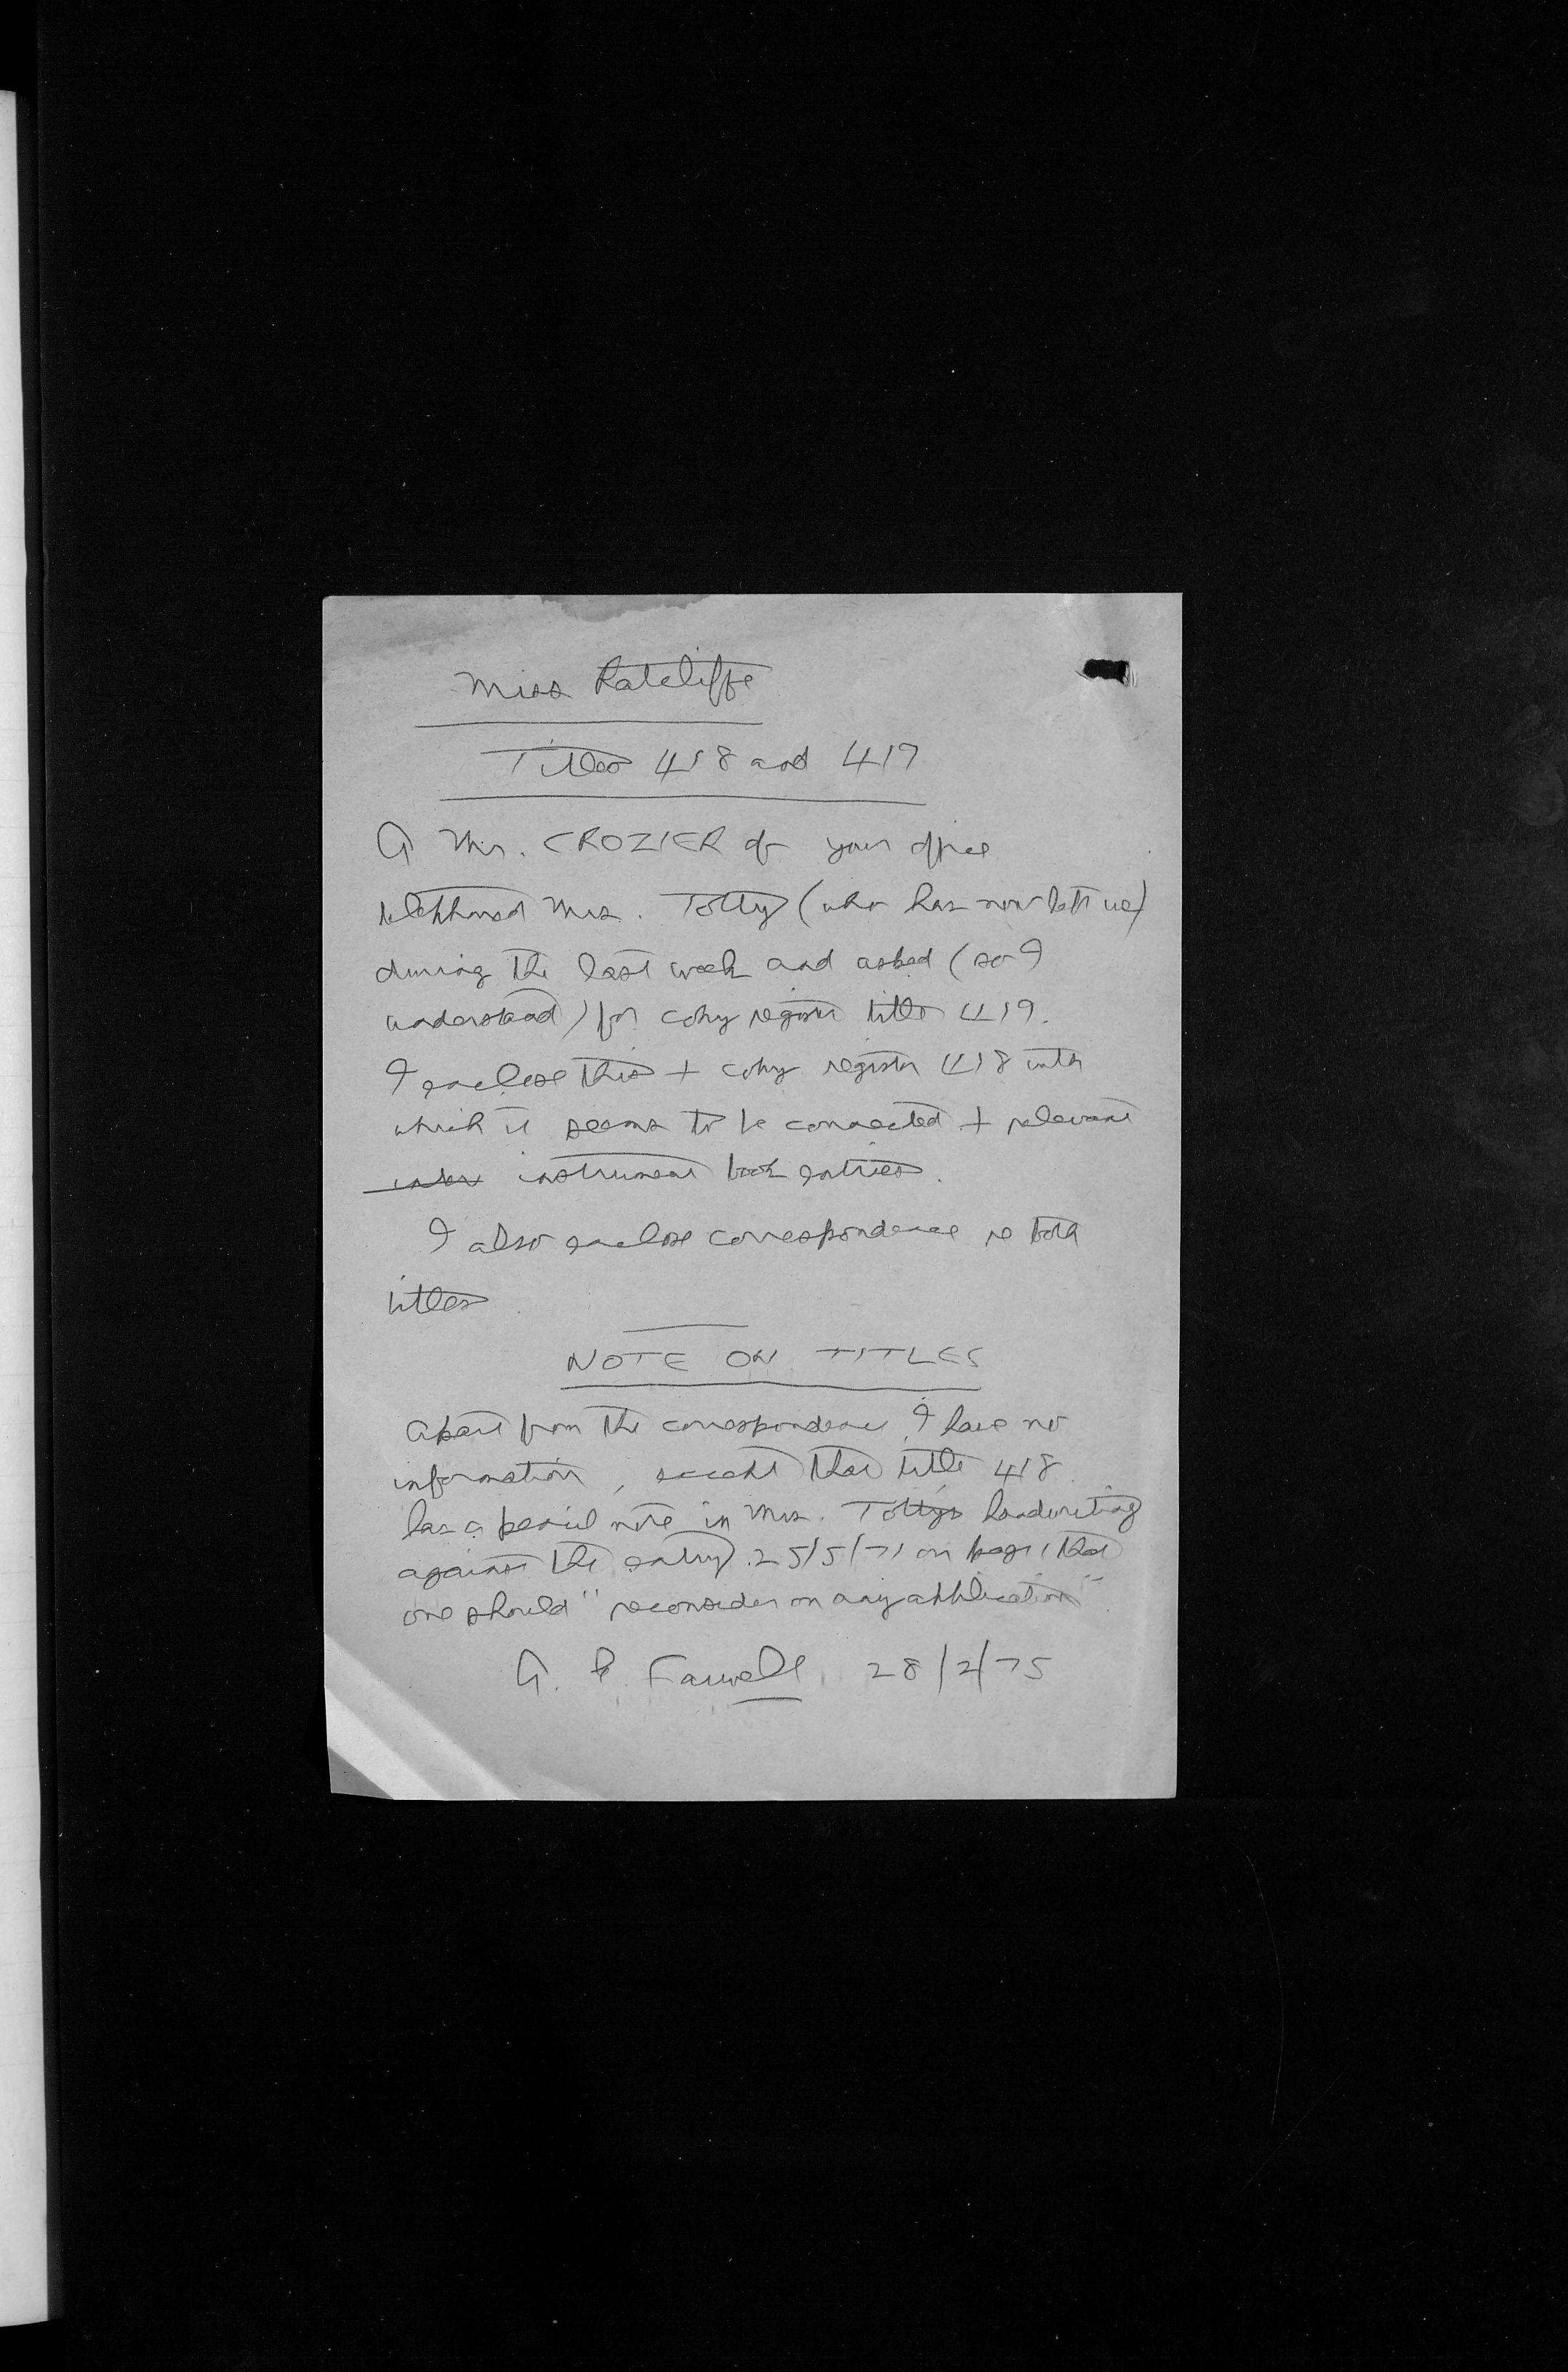 Miss Ratcliffe
Titles 418 and 419
A Mr. CROZIER of your office
telephoned Mrs. Totty (who has now left us)
during the last week and asked (so I
understand) for copy register title 419.
I enclose this + copy register 418 with
which it seems to be connected + relevant
index instrument book entries.
I also enclose correspondence re both
titles
NOTE ON TITLES
Apart from the correspondence, I have no
information, except that title 418
has a pencil note in Mrs. Totty's handwriting
against the entry 25/5/71 on page 1 that
one should "reconsider on any application".
A. P. Farwell. 28/2/75